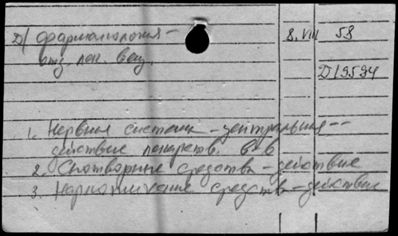 Д) фармакология - 8.VIII 58
отд. лек. вещ.
D19594
1. Нервная система - центральная --
действие лекарств. в-в
2. Снотворные средства - действие
3. Наркотические средства - действие